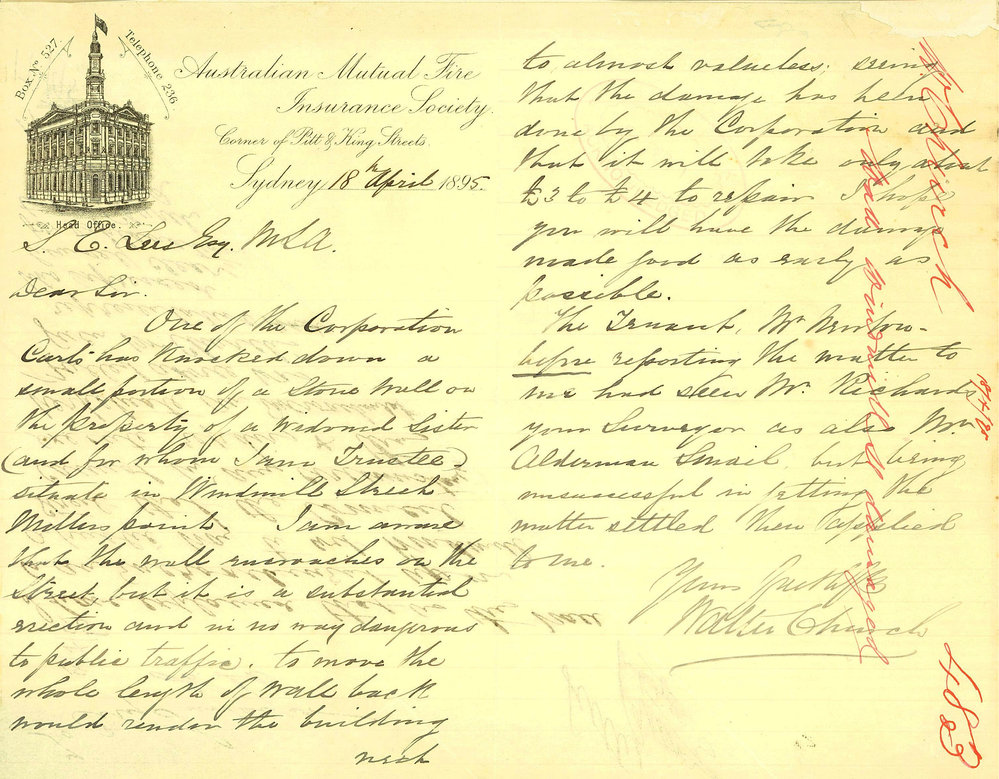 Box Nº 527.
Telephone 236
Head Office.
Australian Mutual Fire
Insurance Society.
Corner of Pitt & King Streets.
Sydney 18th April 1895.
S. E. Lees Esq. MLA.
Dear Sir.
One of the Corporation
Carts has knocked down a
small portion of a Stone Wall on
the property of a widowed Sister
(and for whom I am Trustee)
situate in Windmill Street
Millers point. I am aware
that the wall encroaches on the
Street but it is a substantial
erection and in no way dangerous
to public traffic. to move the
whole length of wall back
would render the building
next
to almost valueless; seeing
that the damage has been
done by the Corporation and
that it will take only about
£3 to £4 to repair I hope
you will have the damage
made good as early as
possible.
The Tenant, Mr Newton-
before reporting the matter to
me had seen Mr Richards
your Surveyor as also Mr
Alderman Smail, but being
unsuccessful in getting the
matter settled then applied
to me.
Yours faithfly
Walter Church
W Church
Windmill St damaged
18/4/95
483